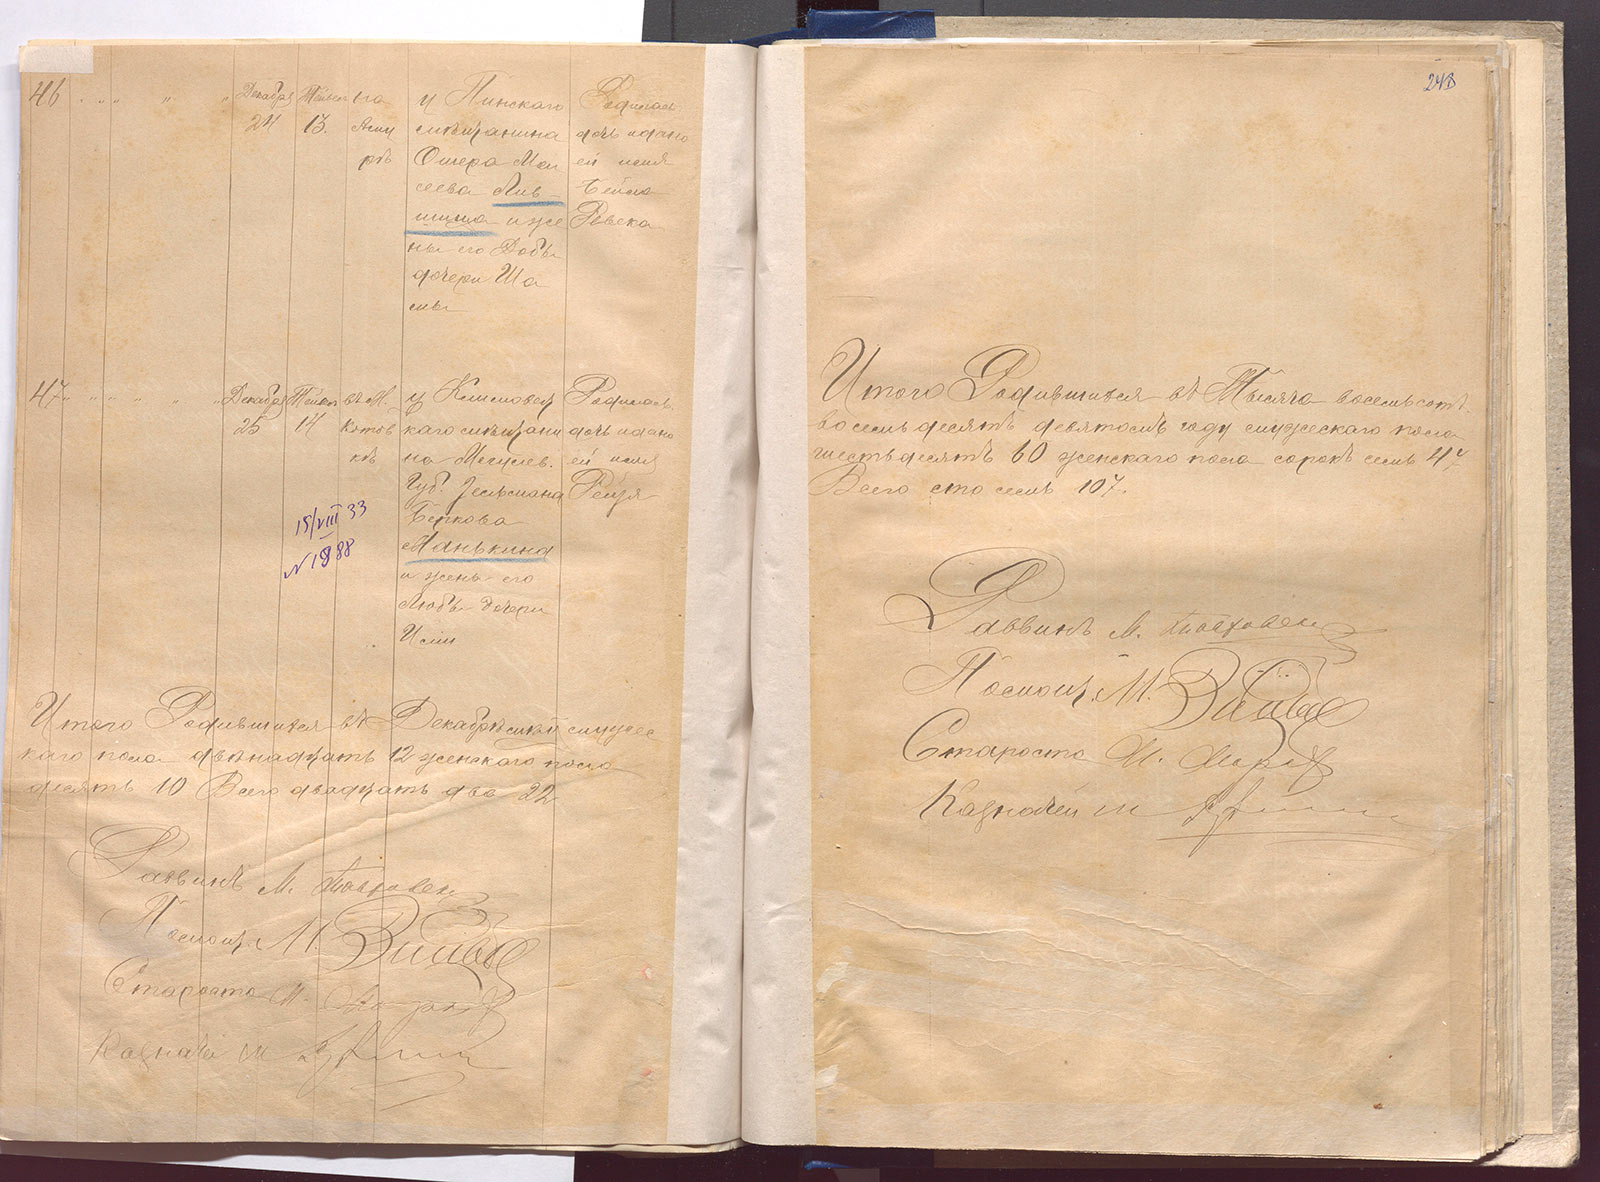 46 „ „ „ „ Декабря 24 13. на
у Пинскаго
мѣщанина
Ошера Мов
сеева Лив
шица и же
ны его Добы
дочери Ша
Родилась
дочь и дано
ей имя
Бейла
Ревека
47 „ „ „ „ „ Декабря 25 14 въ М.
у Климовец
каго мѣщани
на Могилев.
Губ. Зельмана
Беркова
Манькина
и жены его
Любы дочери
Родилась
дочь и дано
ей имя
15/VIII 33
N 1988
Итого Родившихся въ Декабрѣ мужес
каго пола двѣнадцать 12 женскаго пола
десять 10 Всего двадцать два 22
Раввинъ М.
Помощ. М.
Староста М.
Казначей М
248
Итого Родившихся въ Тысяча восемьсотъ
восемьдесятъ девятомъ году мужескаго пола
шестьдесятъ 60 женскаго пола сорокъ семь 47
Всего сто семь 107.
Раввинъ М.
Помощ. М.
Староста М.
Казначей М